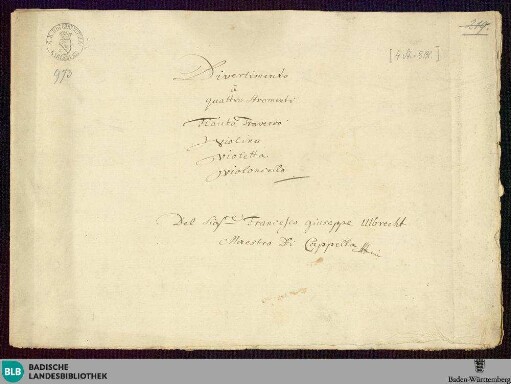 973
Divertimento
à
quattro stromenti
Flauto Traverso
Violino
Violetta
Violoncello
Del Sig:re Francesco Giuseppe Ulbrecht
Maestro Di Cappella
BLB
BADISCHE
LANDESBIBLIOTHEK
Baden-Württemberg